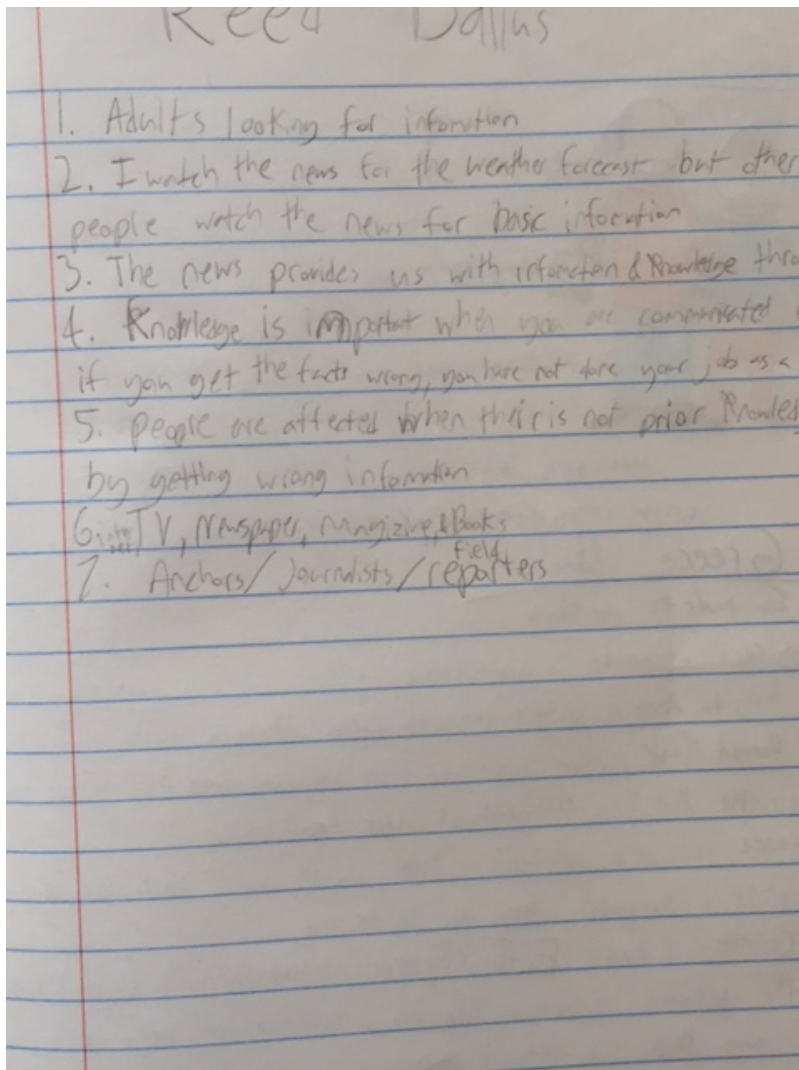 Reed Dallus
1. Adults looking for infomution
2. I watch the news for the weather forecast but other
people watch the news for basic inforution
3. The news provides us with infomction & Knowledge thro
4. Knowledge is important when you are communicated
if you get the facts wrong, you have not done your job as a
5. people are affected when their is not prior Knowled
by getting wrong infomution
6. TV, Newspaper, Magizine, & Books
7. Anchors/Journalists/field reporters